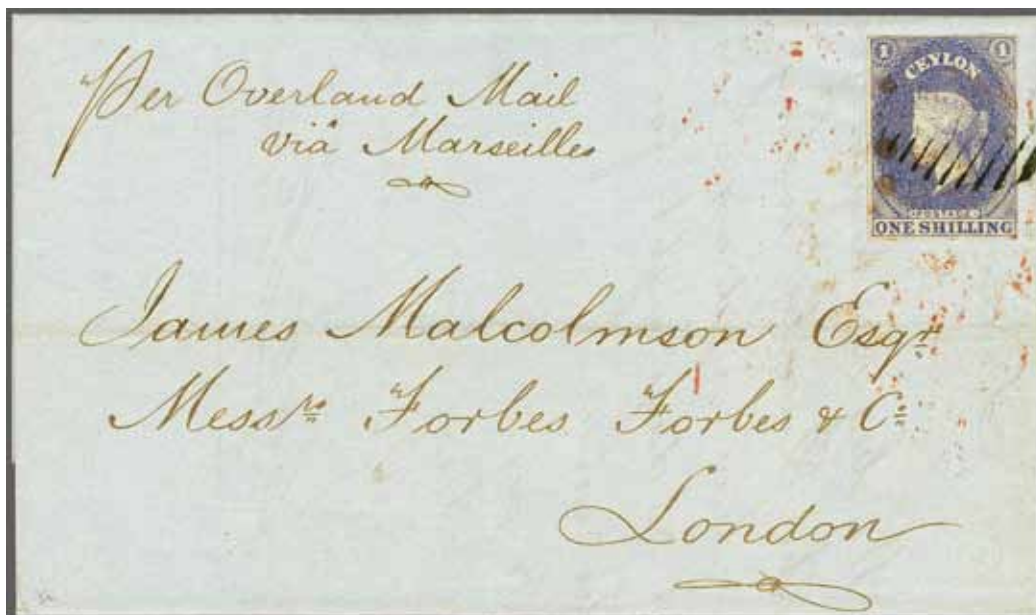 Per Overland Mail
viâ Marseilles
1 CEYLON 1
POSTAGE
ONE SHILLING
James Malcolmson Esqre
Messrs Forbes Forbes & Co
London